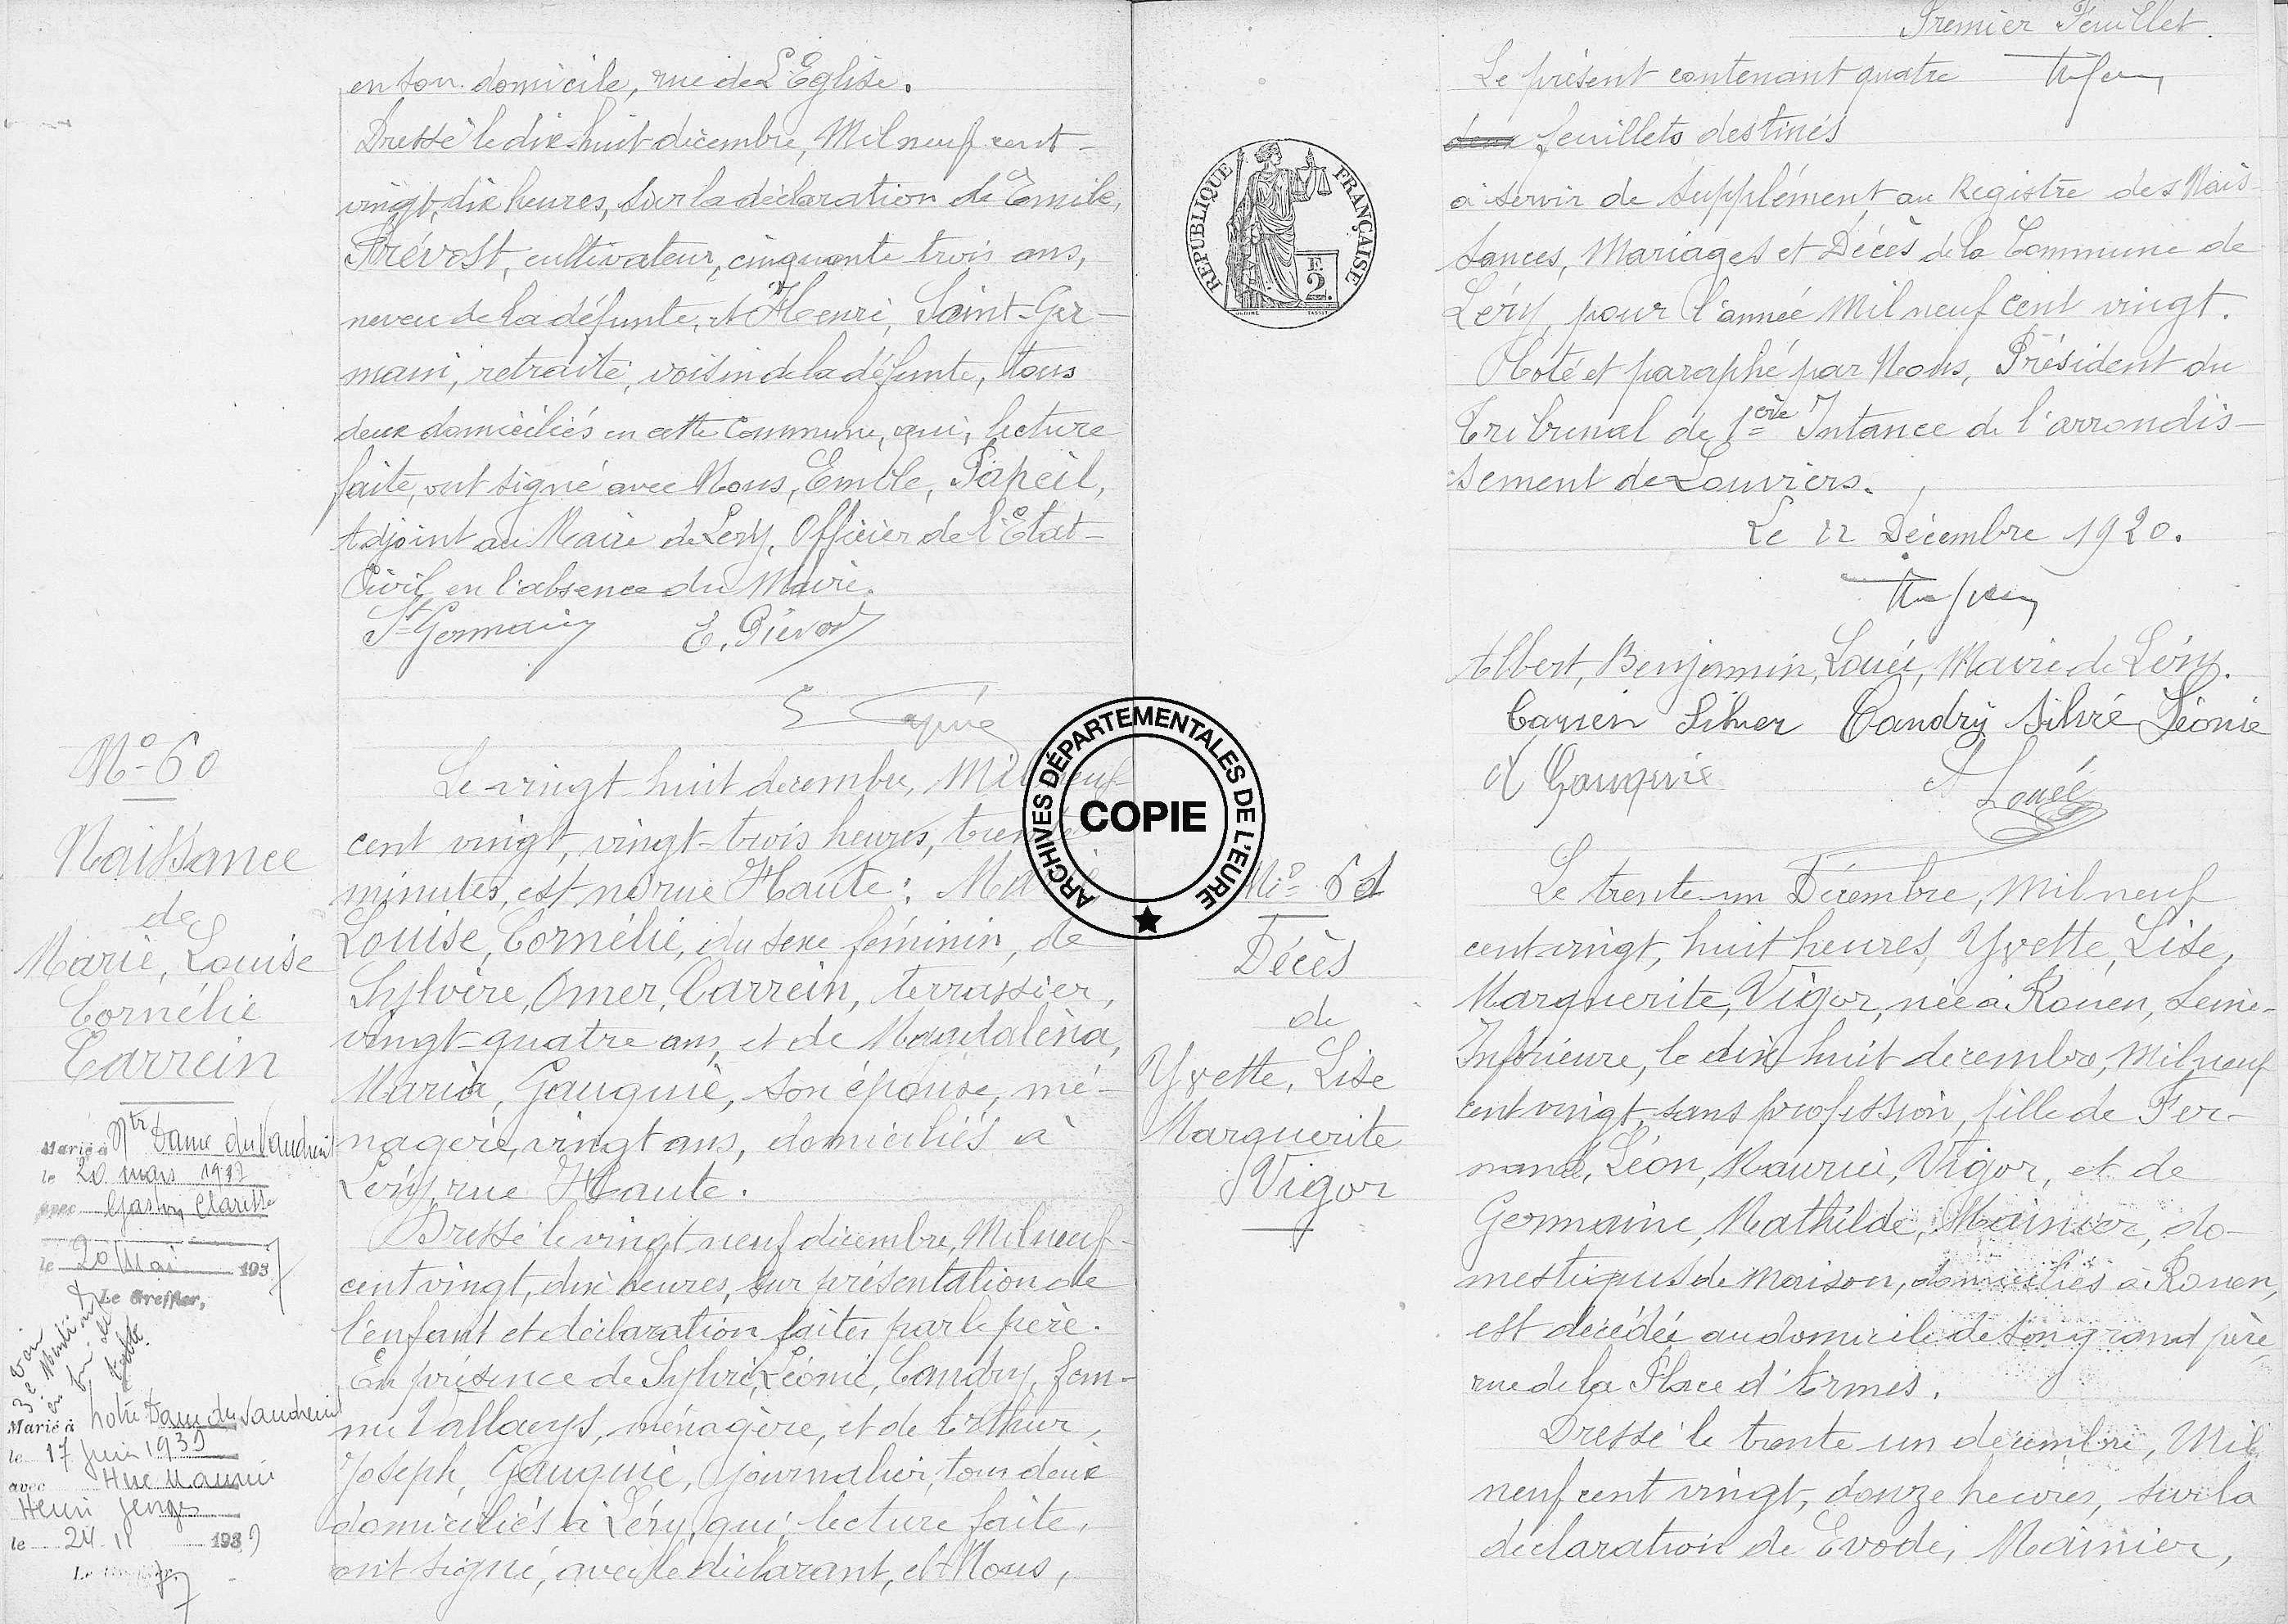 en son domicile, rue de L'Eglise.
Dressé le dix-huit décembre, Mil neuf cent
vingt, dix heures, sur la déclaration de Emile,
Prévost, cultivateur, cinquante trois ans,
neveu de la défunte, et Henri, Saint-Ger-
main, retraité, voisin de la défunte, tous
deux domiciliés en cette Commune, qui, lecture
faite, ont signé avec Nous, Emile, Papeil,
Adjoint au Maire de Lery, Officier de l'Etat-
Civil en l'absence du Maire.
St Germain E. Prévost
N° 60
Naissance
de
Marie, Louise
Cornélie
Carrein
Marié à Ntre Dame du Vaudreuil
le 20 mars 1937
avec Gaston Clarisse
le 20 Mai 1937
Le Greffier,
Marié à Notre Dame du Vaudreuil
le 17 Juin 1939
avec Hue Maurice
Henri Georges
le 24 11 1939
Le vingt huit décembre, Mil neuf
cent vingt, vingt-trois heures, trente
minutes, est né rue Haute: Marie
Louise, Cornélie, du sexe féminin, de
Sylvère, Omer, Carrein, terrassier,
vingt-quatre ans, et de Magdaléna,
Maria, Gauquié, son épouse, mé-
nagère, vingt ans, domiciliés à
Léry, rue Haute.
Dressé le vingt neuf décembre, Mil neuf-
cent vingt, dix heures, sur présentation de
l'enfant et déclaration faites par le père.
En présence de Sylvie, Léonie, Candry, fem-
me Vallaeys, ménagère, et de Arthur,
Joseph, Gauquié, journalier, tous deux
domiciliés à Léry, qui, lecture faite,
ont signé, avec le déclarant, et Nous,
ARCHIVES DÉPARTEMENTALES DE L'EURE
COPIE
Premier Feuillet.
Le présent contenant quatre
deux feuillets destinés
à servir de supplément au Registre des Nais-
sances, Mariages et Décès de la Commune de
Léry, pour l'année Mil neuf cent vingt.
Coté et paraphé par Nous, Président du
Tribunal de 1ère Intance de l'arrondis-
sement de Louviers.
Le 22 Décembre 1920.
RÉPUBLIQUE FRANÇAISE
F.
2.
Albert, Benjamin, Loué, Maire de Léry.
Carrein Silver Candry Silvié Léonie
A Gauquié A Loué
N° 61
Décès
de
Yvette, Lise
Marguerite
Vigor
Le trente-un Décembre, Mil neuf
cent vingt, huit heures, Yvette, Lise,
Marguerite, Vigor, née à Rouen, Seine-
Inférieure, le dix huit décembre, Mil neuf
cent vingt, sans profession, fille de Fer-
nand, Léon, Maurice, Vigor, et de
Germaine, Mathilde, Mainier, do-
mestiques de maison, domiciliés à Rouen,
est décédée au domicile de son grand père,
rue de la Place d'Armes.
Dressé le trente un décembre, Mil
neuf cent vingt, douze heures, sur la
déclaration de Evode, Mainier,